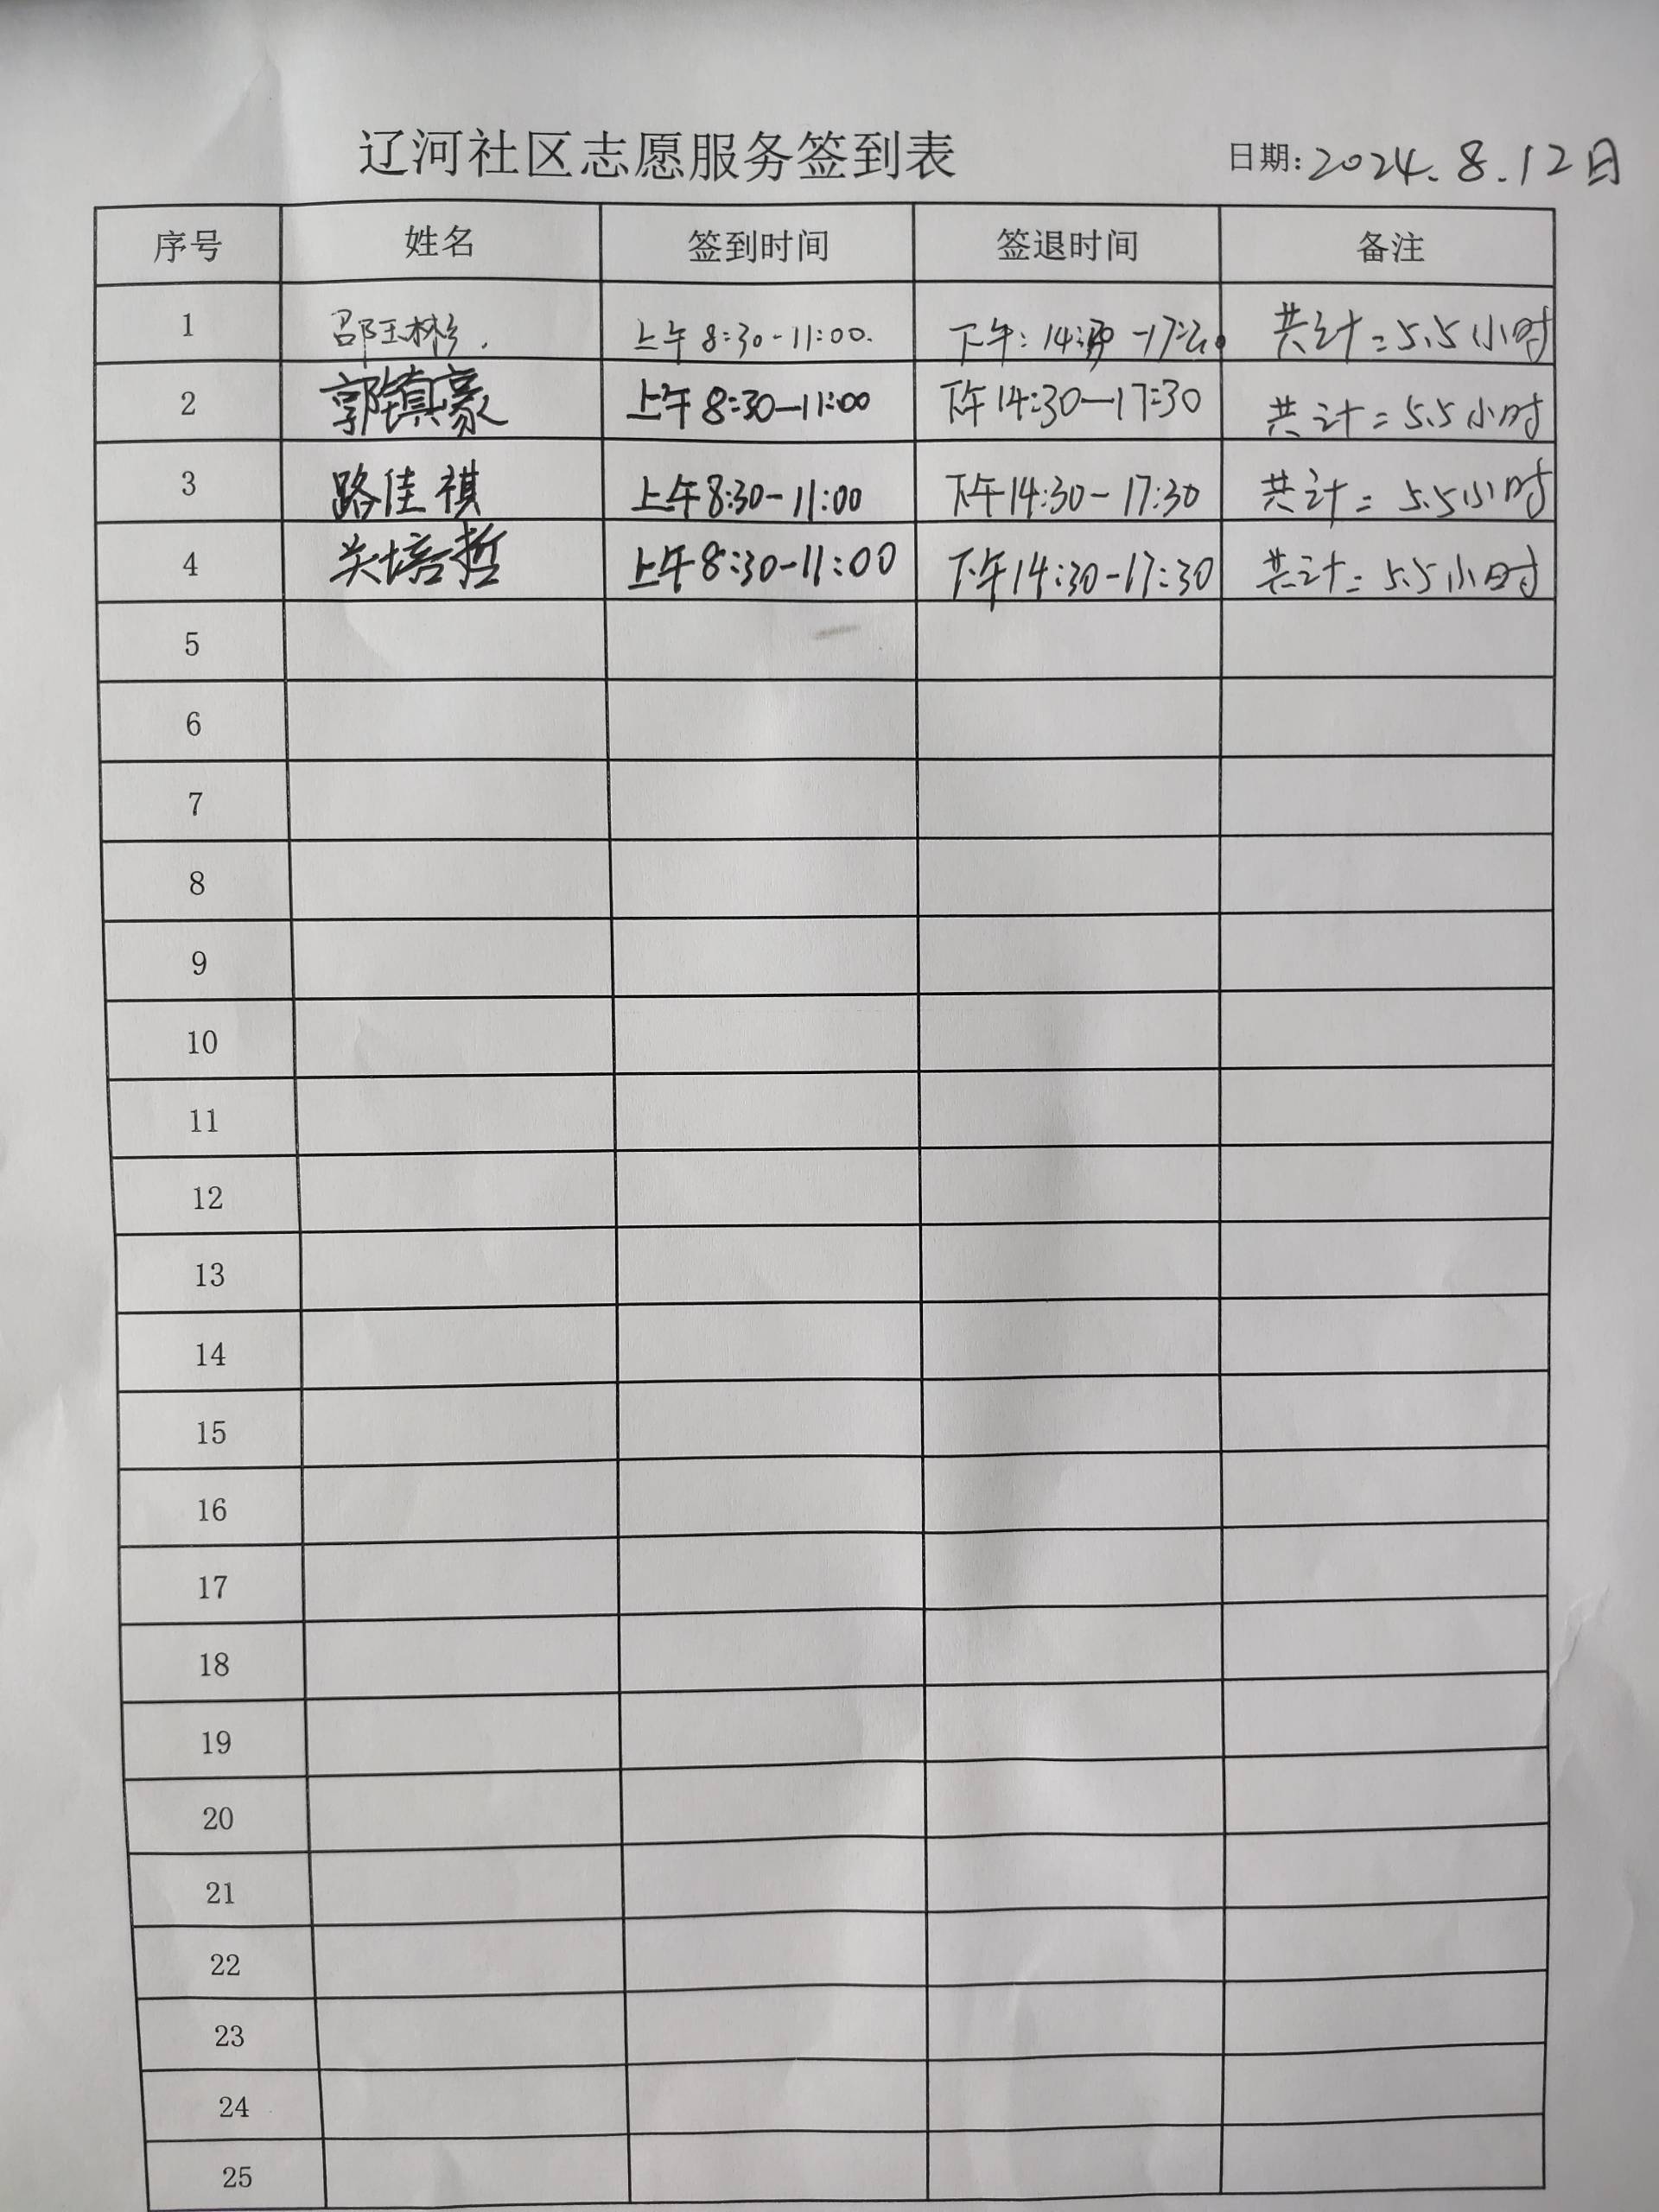 辽河社区志愿服务签到表 日期:2024.8.12日
序号 姓名 签到时间 签退时间 备注
1 邵玉彬. 上午8:30-11:00. 下午: 共计=5.5小时
2 郭镇豪 上午8:30—11:00 下午14:30—17:30 共计=5.5小时
3 路佳祺 上午8:30-11:00 下午14:30-17:30 共计=5.5小时
4 关培哲 上午8:30-11:00 下午14:30-17:30 共计=5.5小时
5
6
7
8
9
10
11
12
13
14
15
16
17
18
19
20
21
22
23
24
25